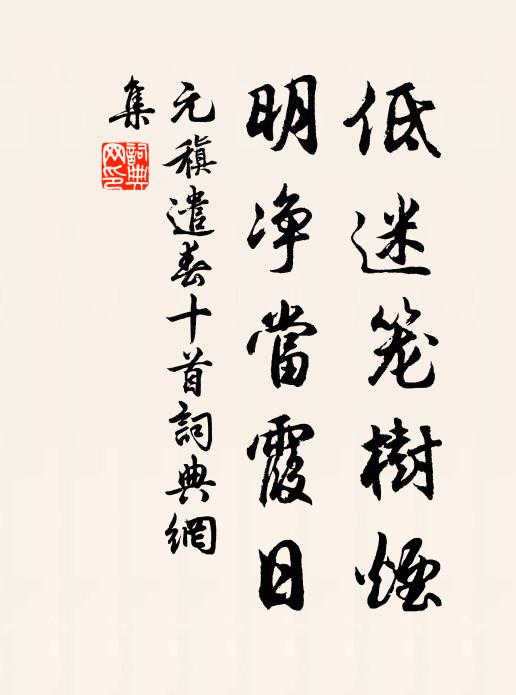 低迷笼樹煙
明净當霞日
元稹遣春十首詞典網
集
詞典
网印